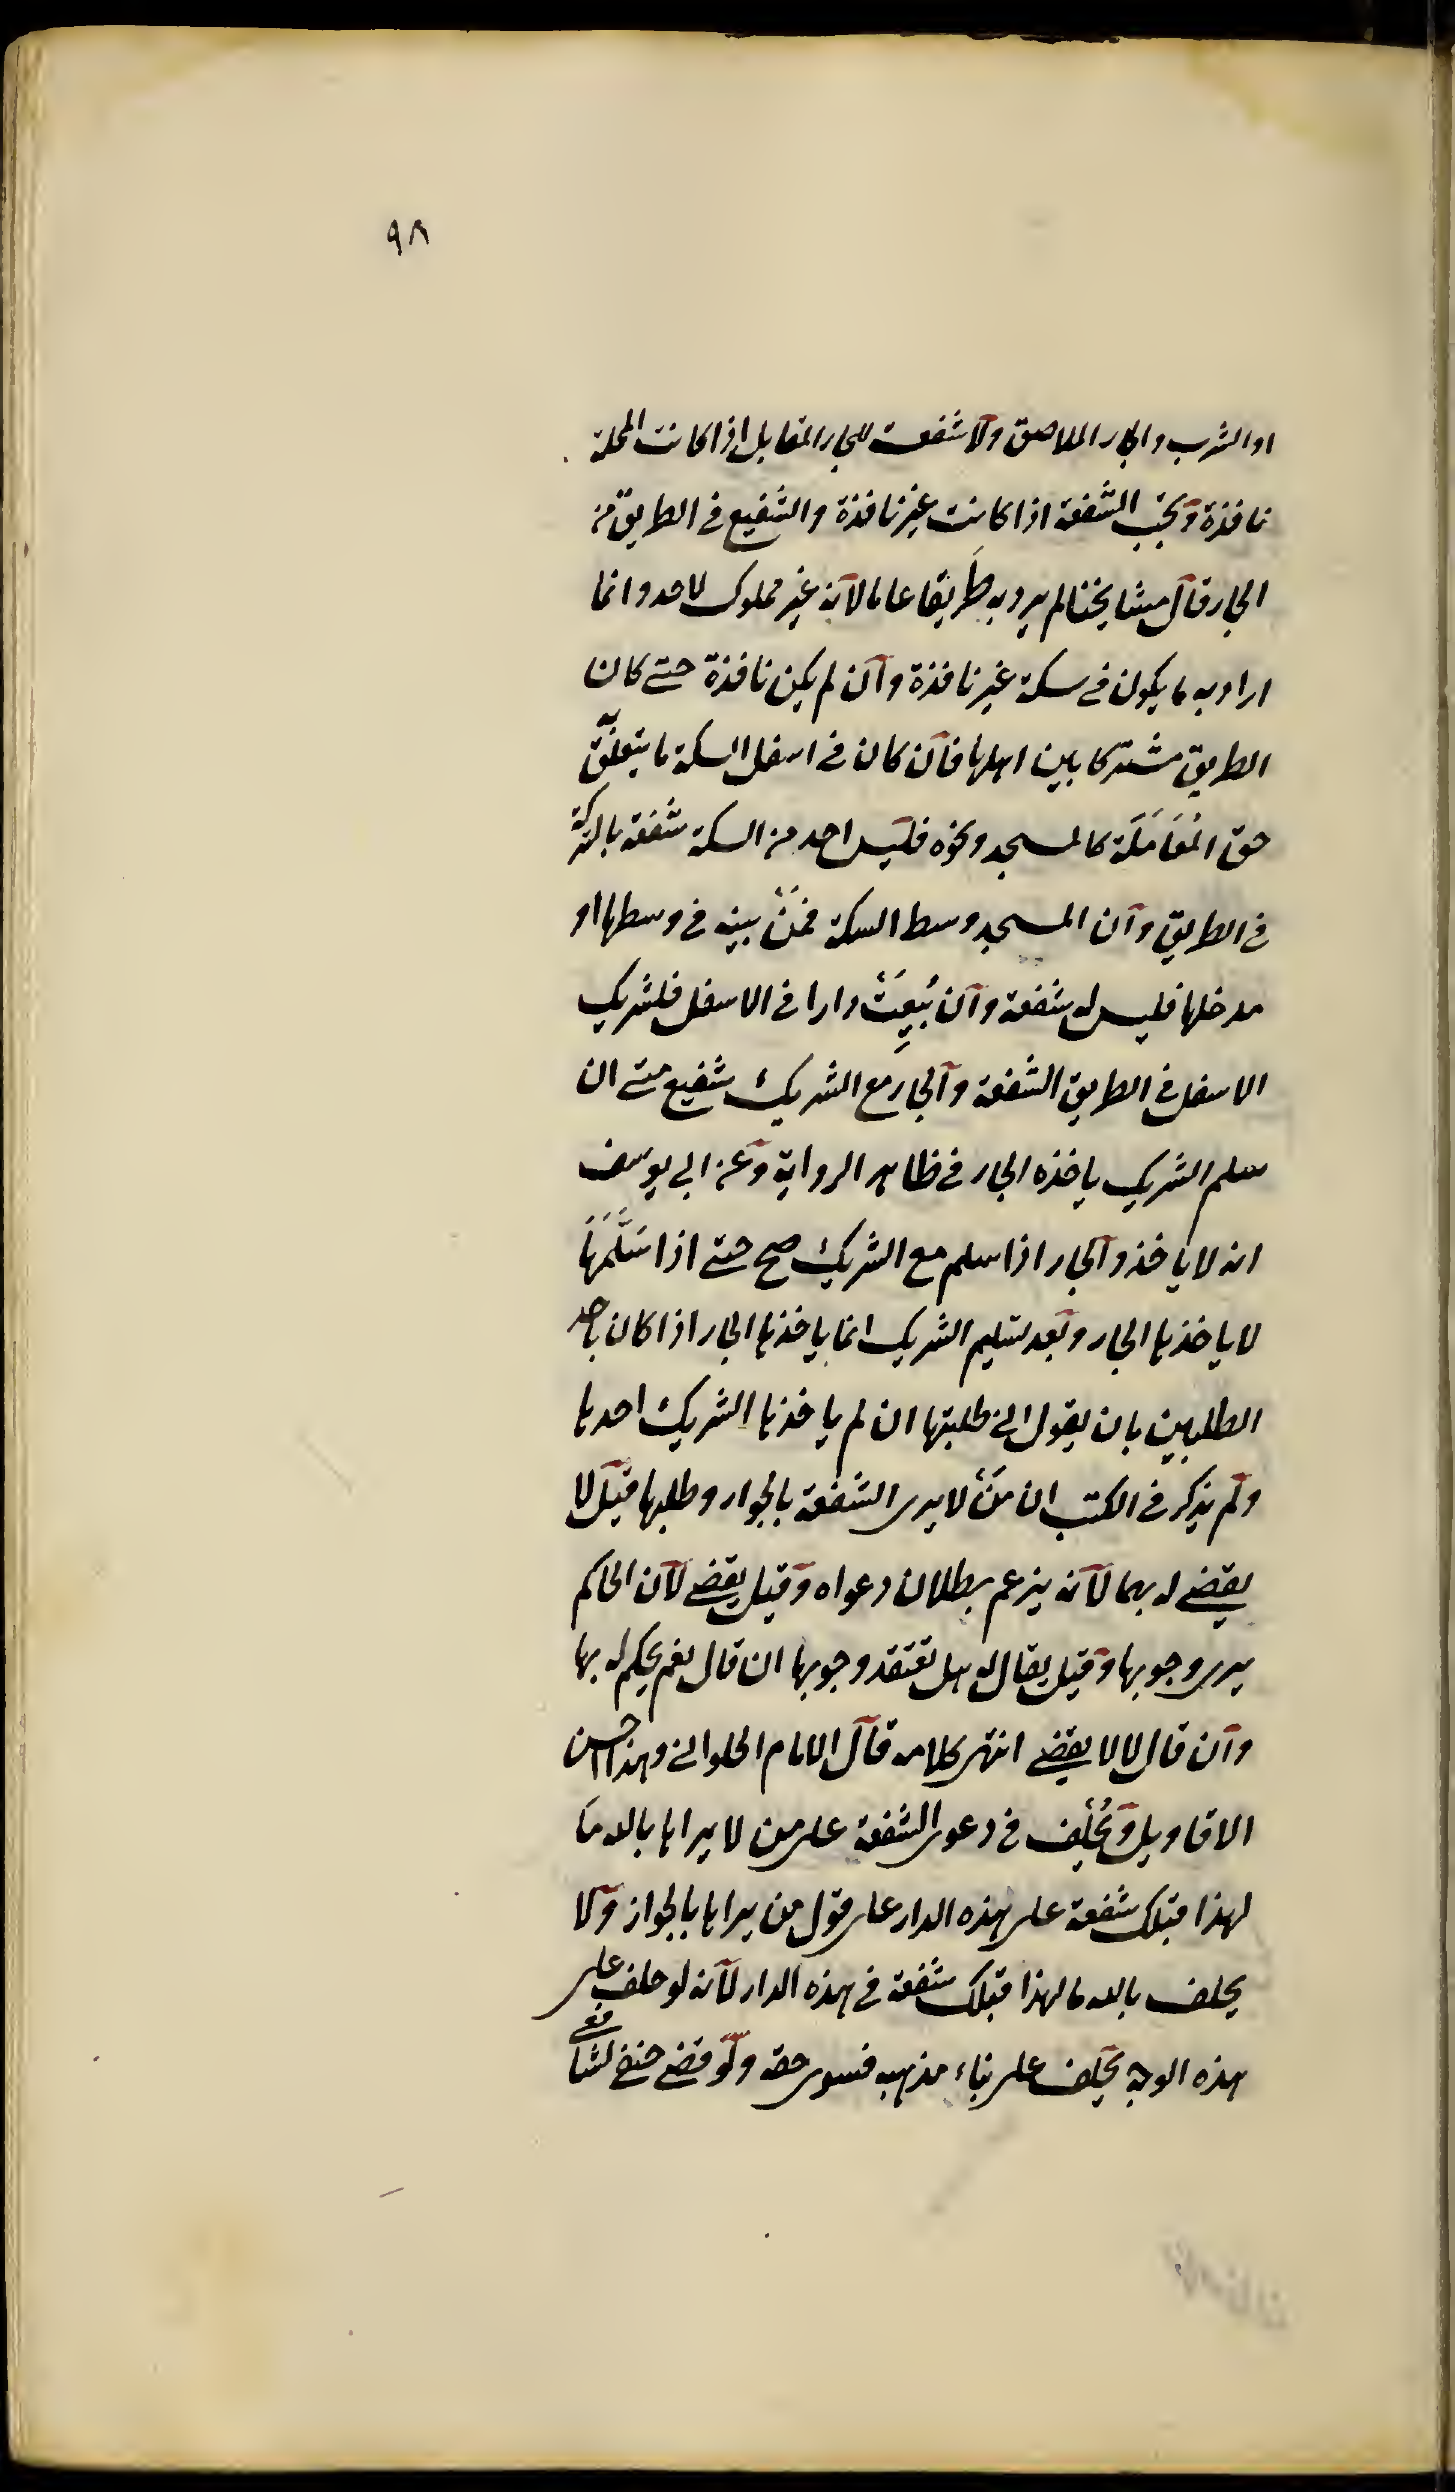 ٩٨
او الشرب والجار الملاصق ولا شفعة للجار المقابل اذا كانت المحلة
نافذة وتجب الشفعة اذا كانت غير نافذة والشفيع في الطريق من
الجار قال مشايخنا لم يرد به طَريقا عاما لانه غير مملوك لاحد وانما
اراد به ما يكون في سكة غير نافذة وان لم يكن نافذة حتى كان
الطريق مشتركا بين اهلها فان كان في اسفل السكة ما يتعلق به
حق كالمسجد ونحوه فليس احد من السكة شفعة بالشركة
في الطريق وان المسجد وسط السكة فمَنْ بيته في وسطها او
مدخلها فليس له شفعة وان بُيِعَتْ دارا في الاسفل فلشريك
الاسفل في الطريق الشفعة والجار مع الشريك شفيع حتى ان
سلم الشريك ياخذه الجار في ظاهر الرواية وعن ابي يوسف
انه لا ياخذ والجار اذا سلم مع الشريك صح حتى اذا سَلَّمَهَا
لا ياخذها الجار وبعد تسليم الشريك انما ياخذها الجار اذا كان
الطلبين بان يقول اني طلبتها ان لم ياخذها الشريك احدها
ولم يذكر في الكتب ان مَنْ لا يرى الشفعة بالجوار وطلبها قيل لا
يقضى له بها لانه يزعم بطلان دعواه وقيل يقضى لان الحاكم
يرى وجوبها وقيل يقال له هل تعتقد وجوبها ان قال نعم يحكم له بها
وان قال لا لا يقضى انتهى كلامه قال الامام الحلواني وهذا احسن
الاقاويل ويُحْلِف في دعوى الشفعة على من لا يراها بالله مَا
لهذا قبلك شفعة على هذه الدار على قول من يراها بالجواز ولا
يحلف بالله ما لهذا قبلك شفعة في هذه الدار لانه لو حلف على
هذه الوجه يحلف على بناء مذهبه فسوى حقه ولو قضى حنفي لشافعي